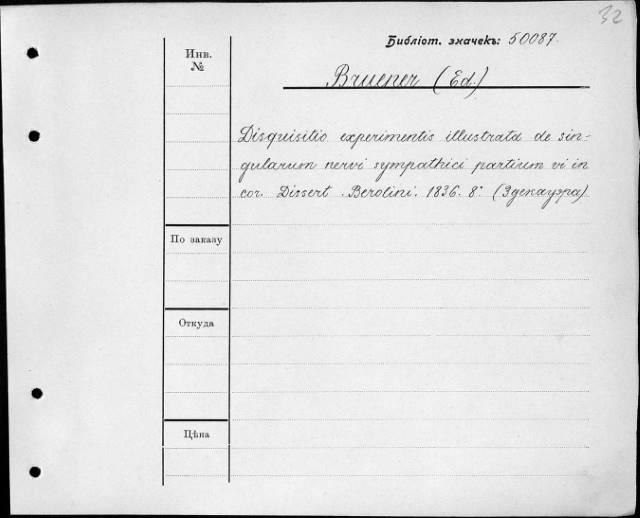 32
Библіот. значекъ: 50087.
Инв.
№
Bruener (Ed.)
Disquisitio experimentis illustrata de sin-
gularum nervi sympathici partium vi in
cor. Dissert. Berolini. 1836. 8°. (Эдекауэра).
По заказу
Откуда
Цѣна